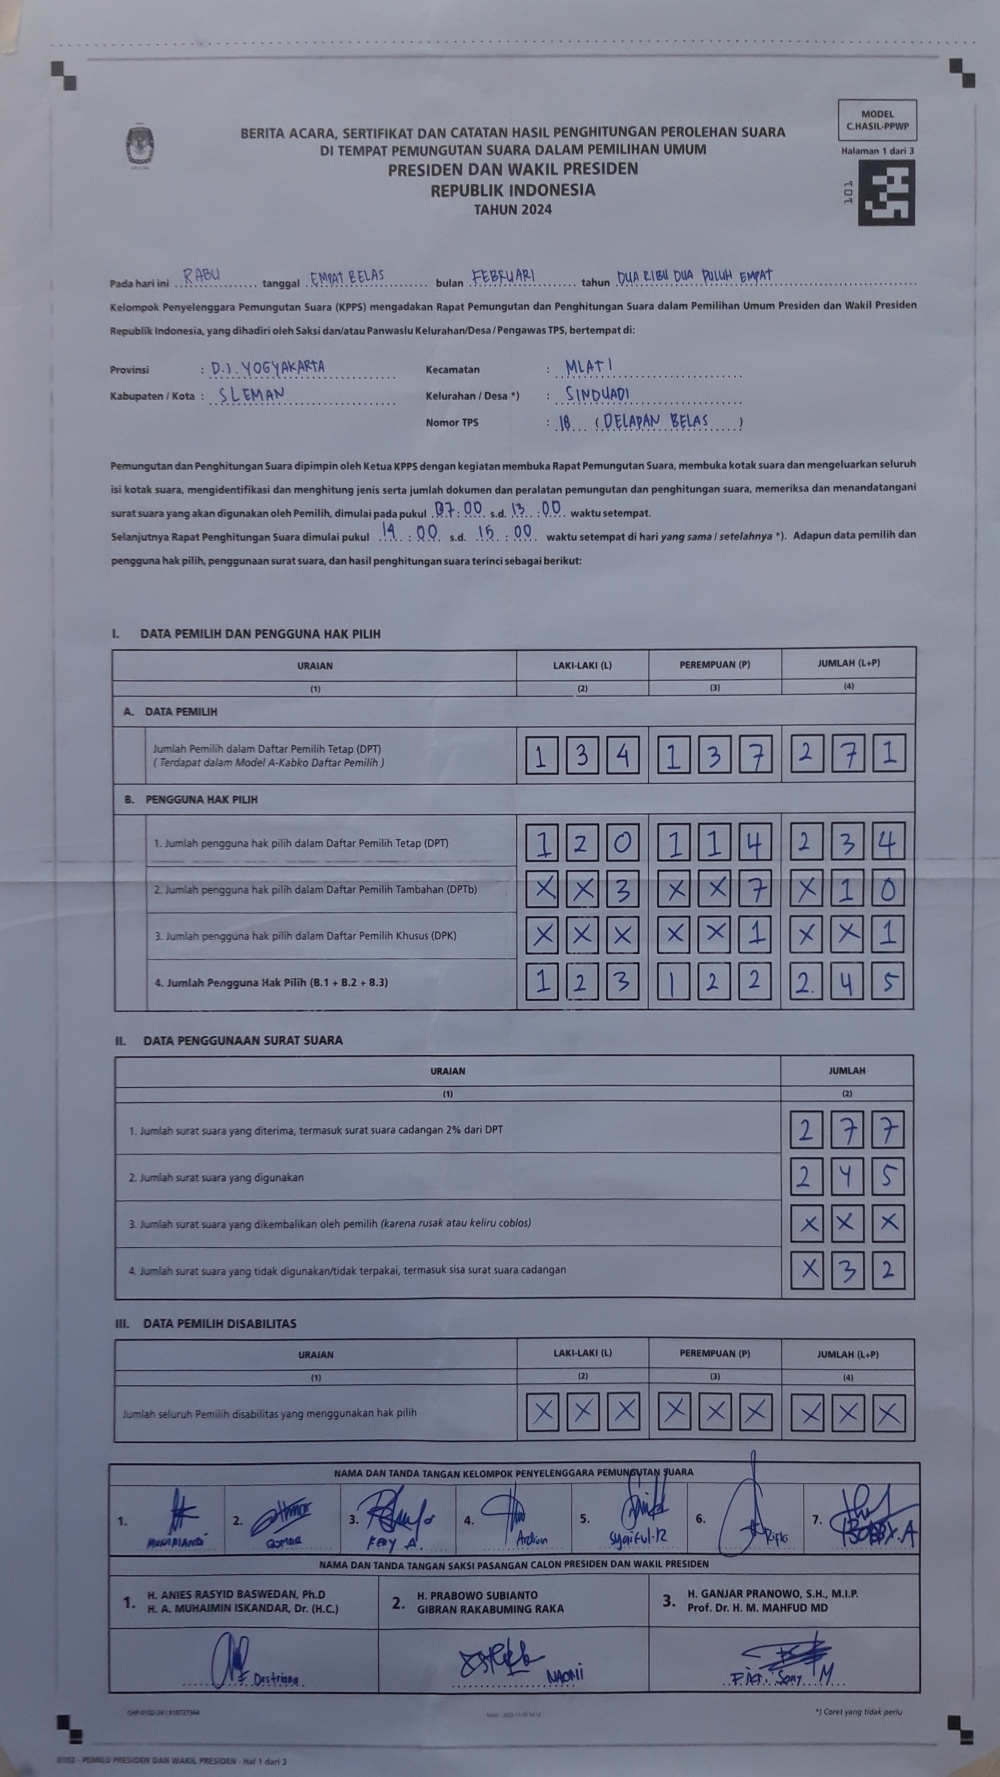 MODEL
C.HASIL-PPWP
Halaman 1 dari 3
101
BERITA ACARA, SERTIFIKAT DAN CATATAN HASIL PENGHITUNGAN PEROLEHAN SUARA
DI TEMPAT PEMUNGUTAN SUARA DALAM PEMILIHAN UMUM
PRESIDEN DAN WAKIL PRESIDEN
REPUBLIK INDONESIA
TAHUN 2024
Pada hari ini RABU tanggal EMPAT BELAS bulan FEBRUARI tahun DUA RIBU DUA PULUH EMPAT
Kelompok Penyelenggara Pemungutan Suara (KPPS) mengadakan Rapat Pemungutan dan Penghitungan Suara dalam Pemilihan Umum Presiden dan Wakil Presiden
Republik Indonesia, yang dihadiri oleh Saksi dan/atau Panwaslu Kelurahan/Desa / Pengawas TPS, bertempat di:
Provinsi : D.I. YOGYAKARTA Kecamatan : MLATI
Kabupaten / Kota : SLEMAN Kelurahan / Desa *) : SINDUADI
Nomor TPS : 18 ( DELAPAN BELAS )
Pemungutan dan Penghitungan Suara dipimpin oleh Ketua KPPS dengan kegiatan membuka Rapat Pemungutan Suara, membuka kotak suara dan mengeluarkan seluruh
isi kotak suara, mengidentifikasi dan menghitung jenis serta jumlah dokumen dan peralatan pemungutan dan penghitungan suara, memeriksa dan menandatangani
surat suara yang akan digunakan oleh Pemilih, dimulai pada pukul 07:00 s.d. 13:00 waktu setempat.
Selanjutnya Rapat Penghitungan Suara dimulai pukul 14:00 s.d. 15:00 waktu setempat di hari yang sama / setelahnya *). Adapun data pemilih dan
pengguna hak pilih, penggunaan surat suara, dan hasil penghitungan suara terinci sebagai berikut:
I. DATA PEMILIH DAN PENGGUNA HAK PILIH
URAIAN LAKI-LAKI (L) PEREMPUAN (P) JUMLAH (L+P)
(1) (2) (3) (4)
A. DATA PEMILIH
Jumlah Pemilih dalam Daftar Pemilih Tetap (DPT) 1 3 4 1 3 7 2 7 1
( Terdapat dalam Model A-Kabko Daftar Pemilih )
B. PENGGUNA HAK PILIH
1. Jumlah pengguna hak pilih dalam Daftar Pemilih Tetap (DPT) 1 2 0 1 1 4 2 3 4
2. Jumlah pengguna hak pilih dalam Daftar Pemilih Tambahan (DPTb) X X 3 X X 7 X 1 0
3. Jumlah pengguna hak pilih dalam Daftar Pemilih Khusus (DPK) X X X X X 1 X X 1
4. Jumlah Pengguna Hak Pilih (B.1 + B.2 + B.3) 1 2 3 1 2 2 2 4 5
II. DATA PENGGUNAAN SURAT SUARA
URAIAN JUMLAH
(1) (2)
1. Jumlah surat suara yang diterima, termasuk surat suara cadangan 2% dari DPT 2 7 7
2. Jumlah surat suara yang digunakan 2 4 5
3. Jumlah surat suara yang dikembalikan oleh pemilih (karena rusak atau keliru coblos) X X X
4. Jumlah surat suara yang tidak digunakan/tidak terpakai, termasuk sisa surat suara cadangan X 3 2
III. DATA PEMILIH DISABILITAS
URAIAN LAKI-LAKI (L) PEREMPUAN (P) JUMLAH (L+P)
(1) (2) (3) (4)
Jumlah seluruh Pemilih disabilitas yang menggunakan hak pilih X X X X X X X X X
NAMA DAN TANDA TANGAN KELOMPOK PENYELENGGARA PEMUNGUTAN SUARA
1. 2. 3. 4. Ardian 5. Syaiful.R 6. Rifki 7.
NAMA DAN TANDA TANGAN SAKSI PASANGAN CALON PRESIDEN DAN WAKIL PRESIDEN
1. H. ANIES RASYID BASWEDAN, Ph.D
H. A. MUHAIMIN ISKANDAR, Dr. (H.C.)
2. H. PRABOWO SUBIANTO
GIBRAN RAKABUMING RAKA
3. H. GANJAR PRANOWO, S.H., M.I.P.
Prof. Dr. H. M. MAHFUD MD
Destriana NAOMI Sony M
*) Coret yang tidak perlu
0102 - PEMILU PRESIDEN DAN WAKIL PRESIDEN - Hal 1 dari 3